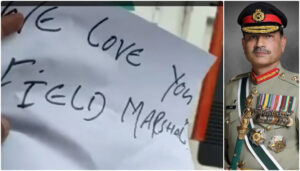 WE LOVE YOU
FIELD MARSHAL